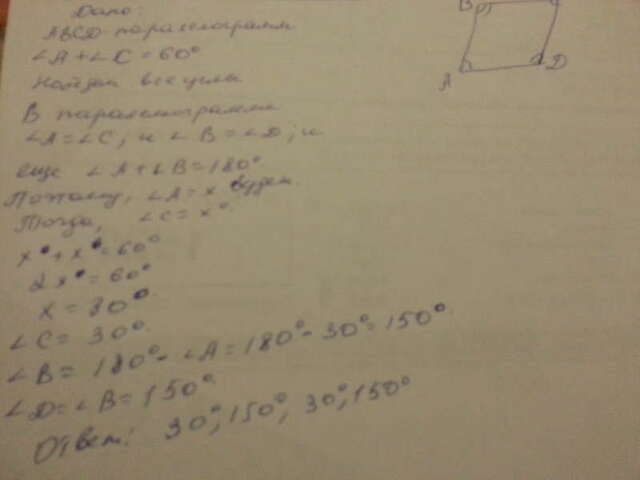 Дано:
ABCD-параллелограмм
∠A+∠C=60°
Найти все углы
B
A
D
В параллелограмме
∠A=∠C, и ∠B=∠D, и
еще ∠A+∠B=180°
Поэтому, ∠A=x будем.
Тогда, ∠C=x°
x°+x°=60°
2x°=60°
x=30°
∠C=30°
∠B=180°-∠A=180°-30°=150°
∠D=∠B=150°
Ответ: 30°, 150°, 30°, 150°